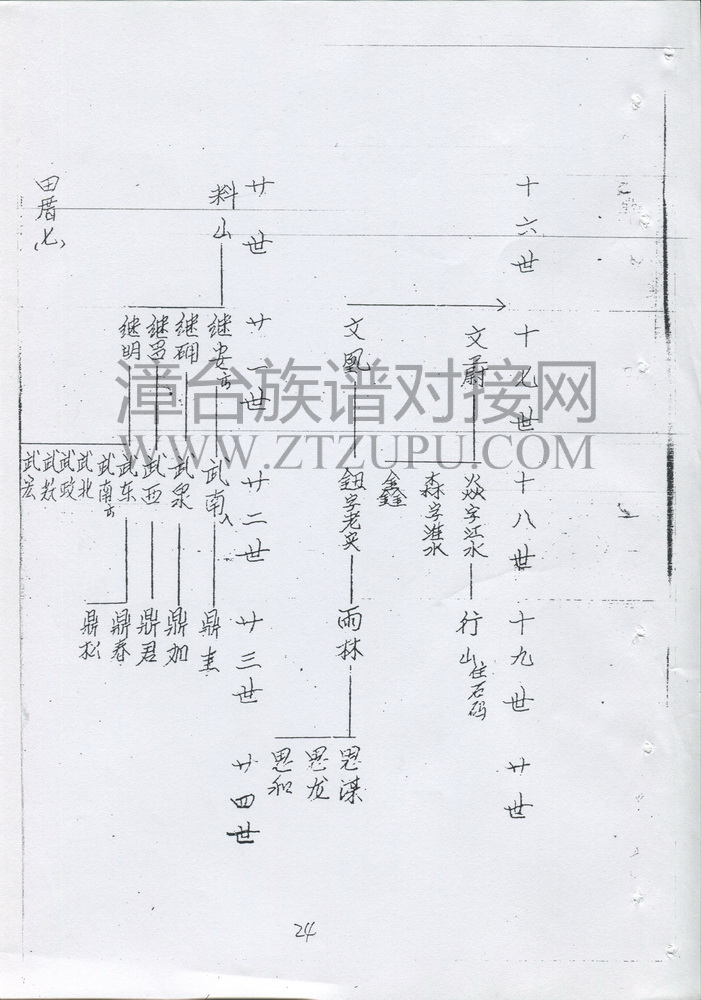 十六世
十七世
十八世
十九世
廿世
文蔚
焱字江水
森字淮水
鑫
行山住石码
文凰
鈕字老实
雨林
思谋
思龙
思和
廿世
廿一世
廿二世
廿三世
廿四世
料山
继安
继硕
继吕
继明
武南
武泉
武西
武东
武南
武北
武政
武宏
鼎圭
鼎加
鼎君
鼎春
鼎松
田厝
漳台族谱对接网
WWW.ZTZUPU.COM
24